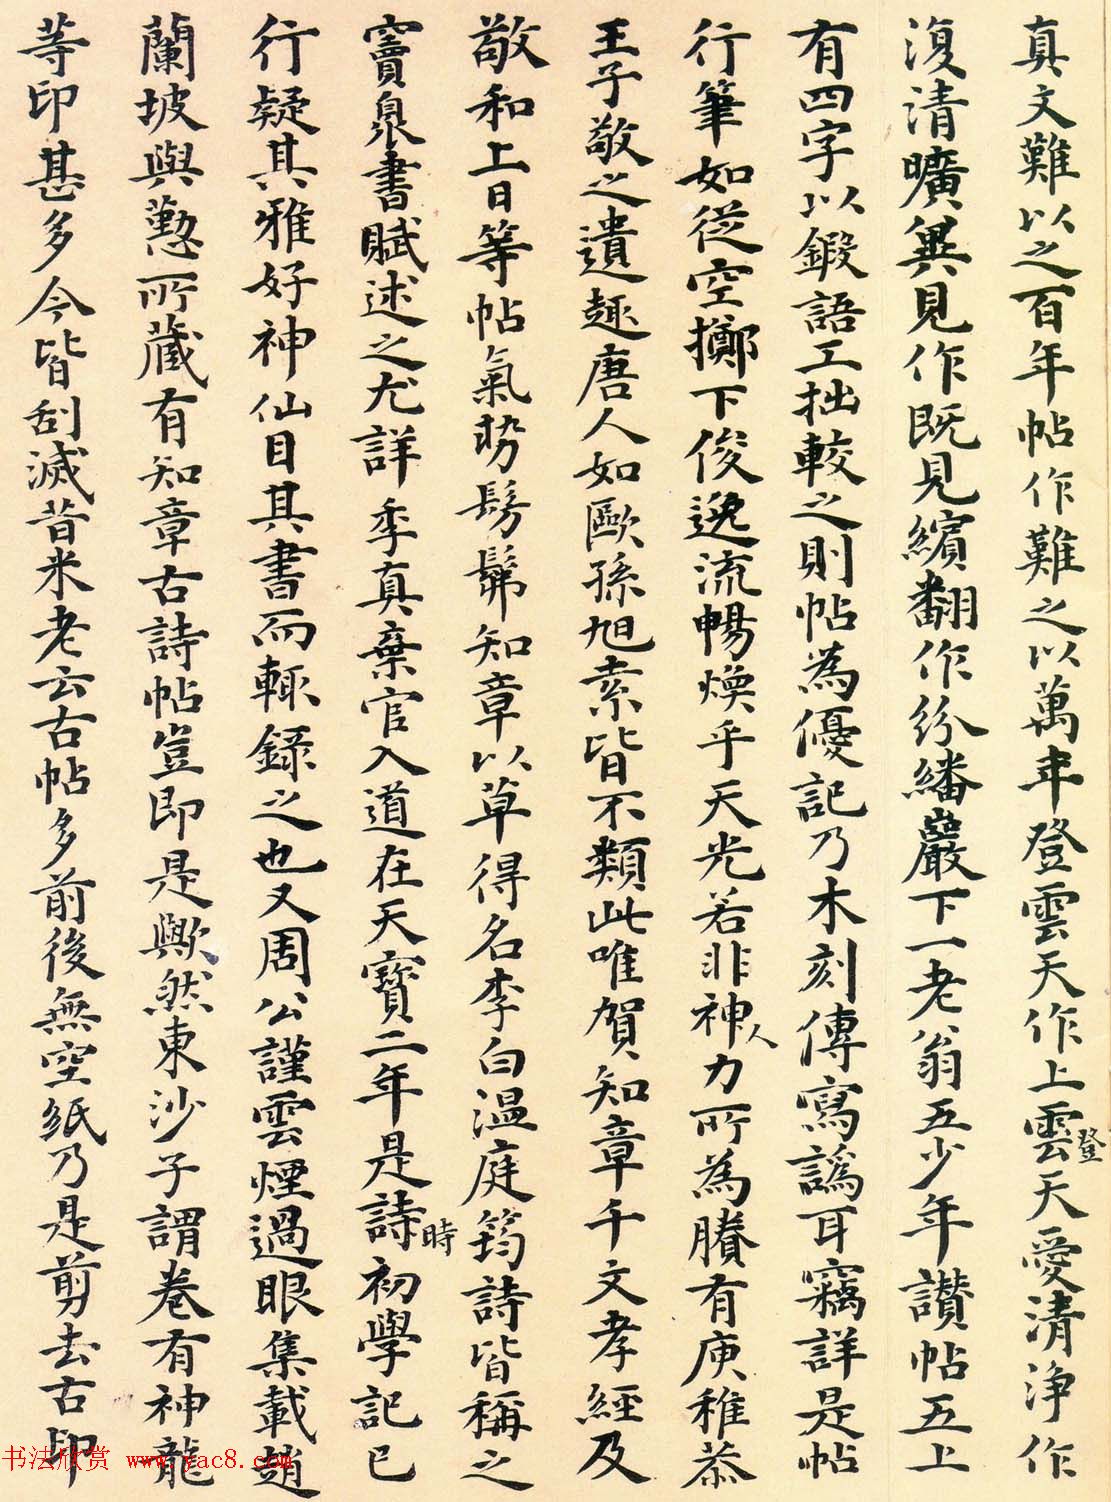 真文難以之百年帖作難之以萬年登雲天作上雲天愛清淨作
登
復清曠異見作既見繽翻作紛繙巖下一老翁五少年讃帖五上
有四字以鍛語工拙較之則帖為優記乃木刻傳寫譌耳竊詳是帖
行筆如從空擲下俊逸流暢煥乎天光若非神力所為賸有庾稚恭
人
王子敬之遺趣唐人如歐孫旭素皆不類此唯賀知章千文孝經及
敬和上日等帖氣勢髣髴知章以草得名李白温庭筠詩皆稱之
竇泉書賦述之尤詳季真棄官入道在天寶二年是詩初學記已
時
行疑其雅好神仙目其書而輙録之也又周公謹雲煙過眼集載趙
蘭坡與懃所藏有知章古詩帖豈即是歟然東沙子謂卷有神龍
等印甚多今皆刮滅昔米老云古帖多前後無空紙乃是剪去古印
书法欣赏 www.yac8.com